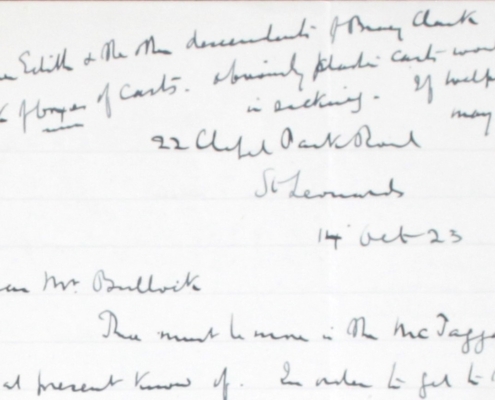 Edith & the other descendants of Bracy Clark
of boxes of casts. obviously plaster casts
in sacking. If
may
22 Chapel Park Road
St Leonards
14 Oct 23
Mr. Bullock
There must be more in the McTagga
at present know of. In order to get to